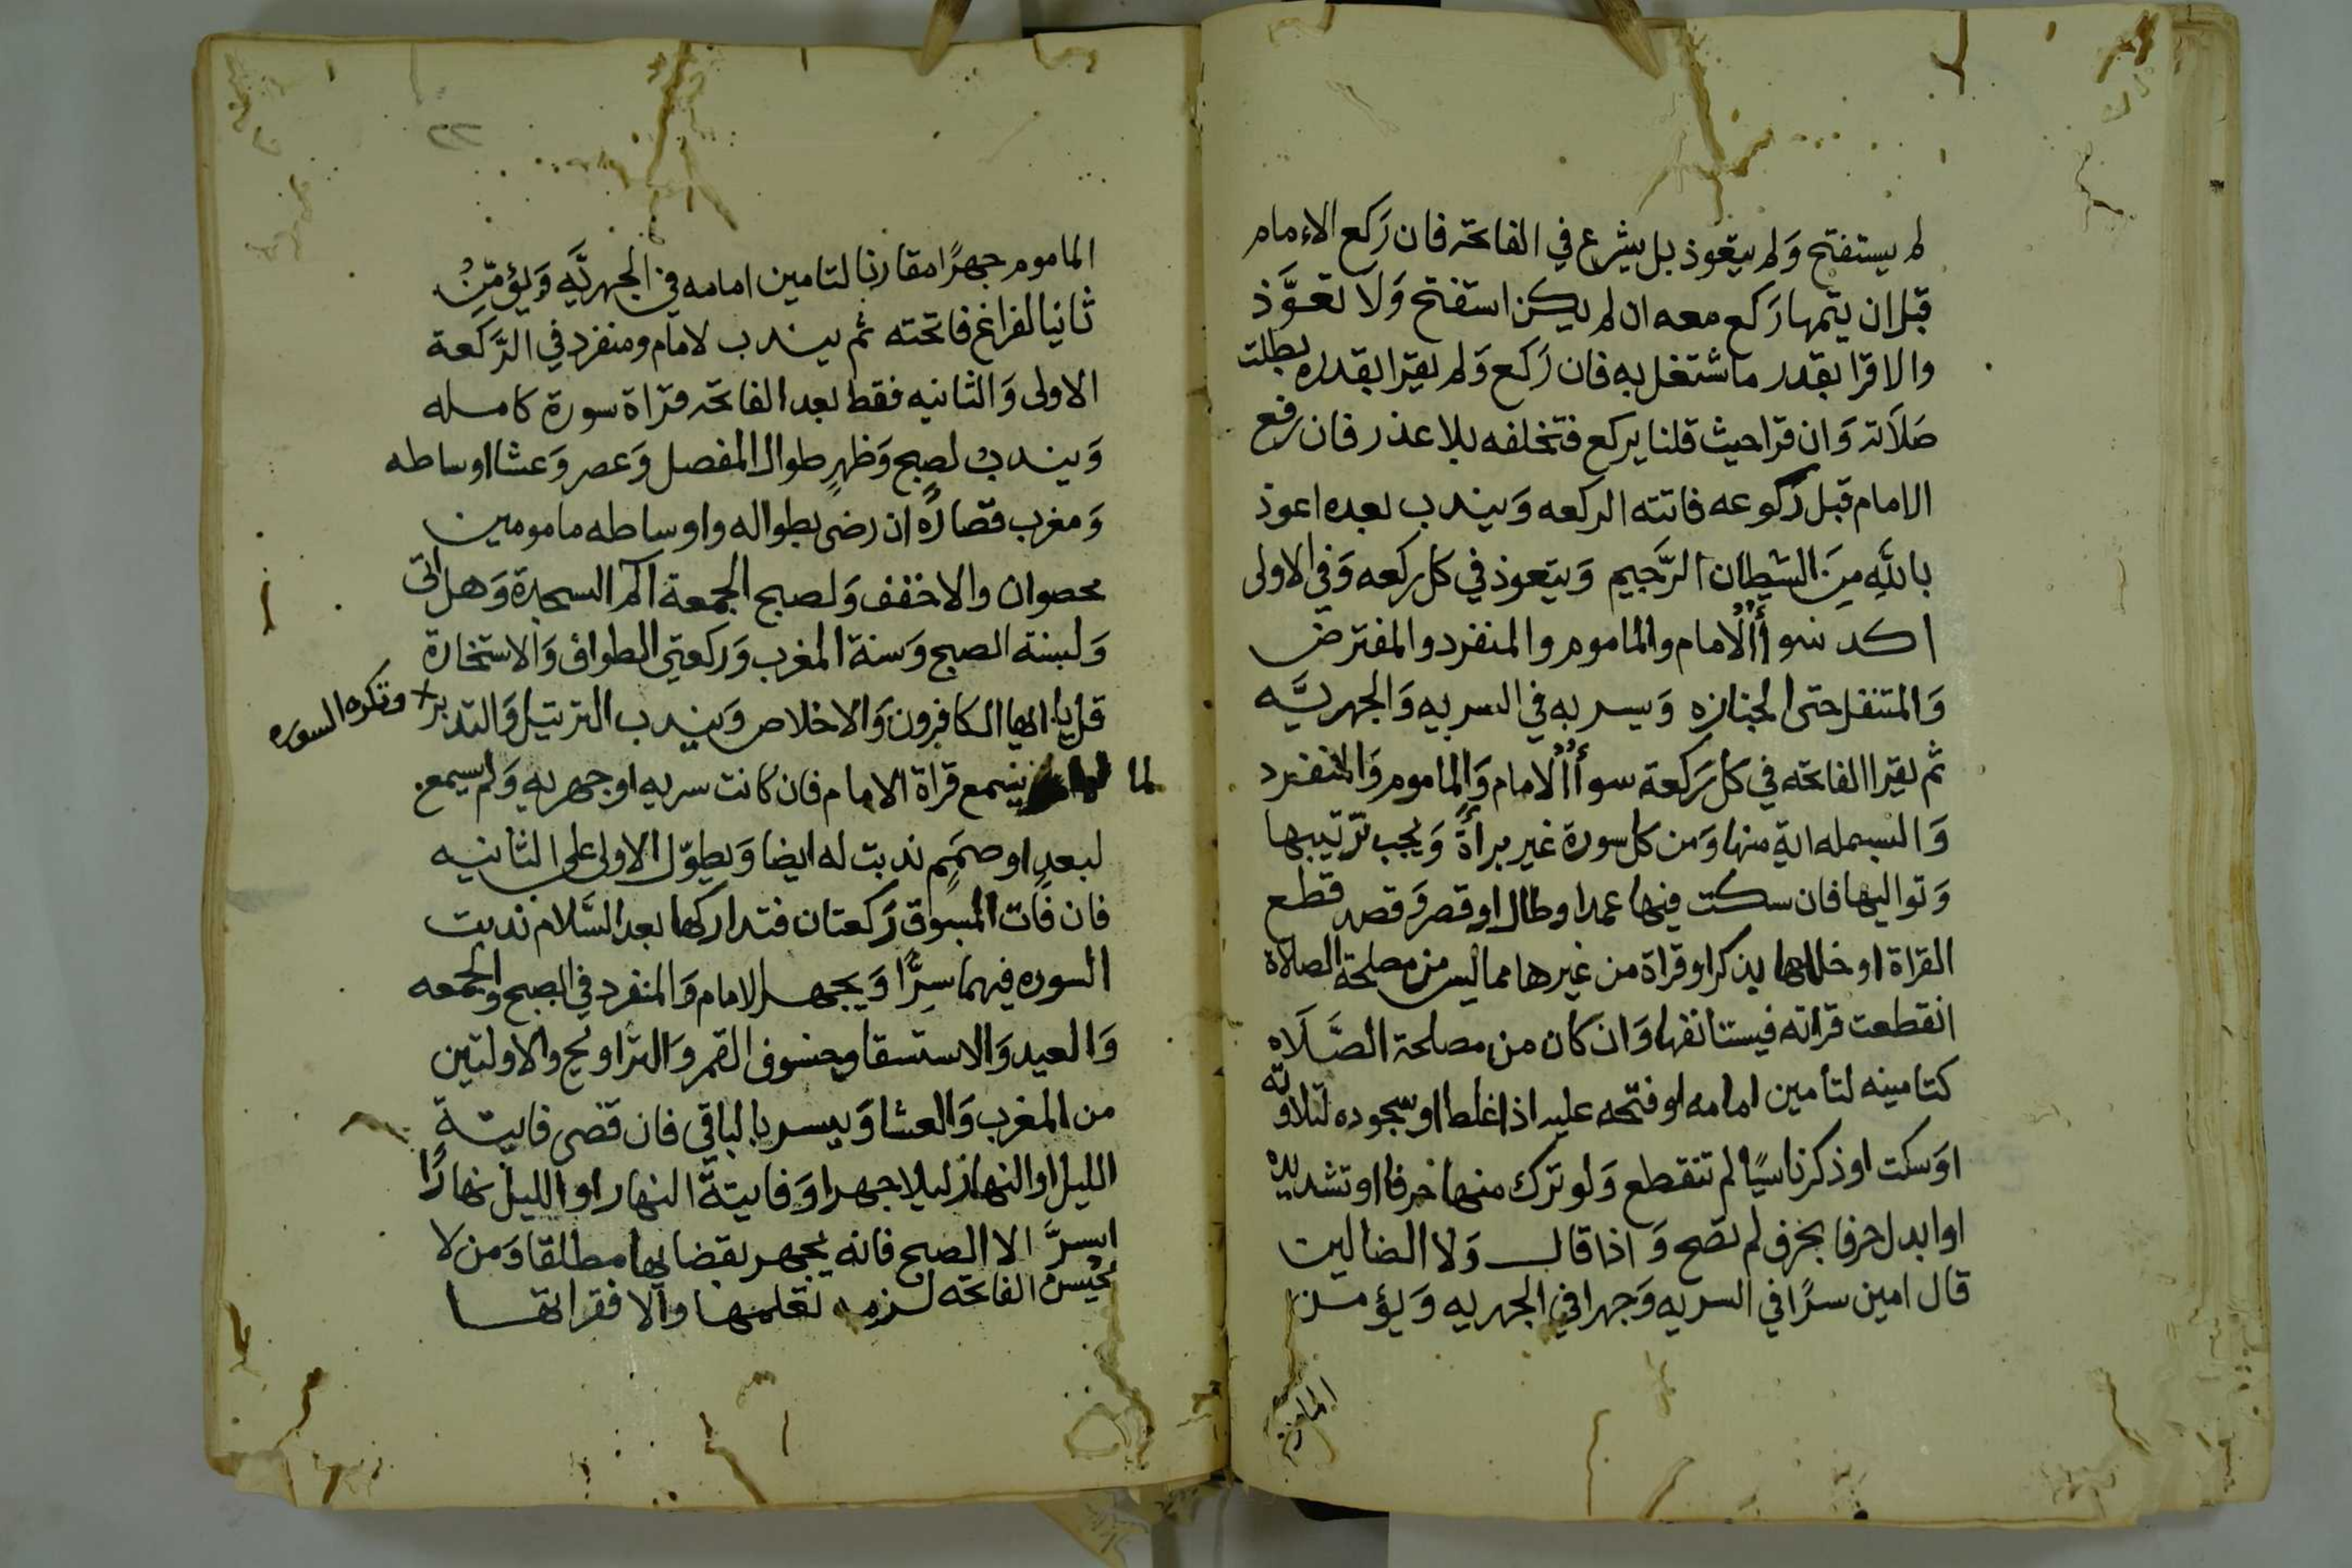 لم يستفتح وَلم يتعوذ بل يشرع في الفاتحة فان رَكع الامام
قبل ان يتمها رَكع معه ان لم يكن استفتح وَلَا تعوَّذ
والا قرا بقدر ما شتغل به فان رَكع وَلم يقرا بقدره بطلت
صَلَاته وَان قرا حيث قلنا يركع فتخلفه بلا عذر فان رفع
الامام قبل رَكوعه فاتته الركعه وَيندب بعده اعوذ
باللَّهِ مِنَ الشيطان الرَّجيم وَيتعوذ في كل ركعه وَفي الاولى
اكد سوأ الامام والماموم والمنفرد والمفترض
وَالمتنفل حتى الجنازه وَيسر به في السريه وَالجهريَّه
ثم يقرا الفاتحه في كل رَكعة سوأ الامام وَالماموم وَالمنفرد
وَالبسمله اية منها وَمن كل سورة غير برأة وَيجب ترتيبها
وَتواليها فان سكت فيها عمدا وطال او قصر وَقصد قطع
القراة او خللها بذكر او قراة من غيرها مما ليس من مصلحة الصلاة
انقطعت قراته فيستانفها وَان كان من مصلحة الصَّلَاه
كتامينه لتامين امامه او فتحه عليه اذا غلط او سجوده لتلاوته
اوَسكت او ذكر ناسيًا لم تنقطع وَلو ترك منها حرفا او تشديده
او ابدل حرفا بحرف لم تصح وَاذا قال وَلا الضالين
قال امين سرًا في السريه وَجهرا في الجهريه وَيؤمن
الماموم
٢٢
الماموم جهرًا مقارنا لتامين امامه في الجهريَّه وَيؤمّنُ
ثانيا لفراغ فاتحته ثم يندب لامام ومنفرد في الرَّكعة
الاولى وَالثانيه فقط بعد الفاتحة قراة سورة كامله
وَيندبُ لصبح وَظهرٍ طوال المفصل وَعصر وَعشا اوساطه
وَمغرب قصارُه ان رضى بطواله واوساطه مامومين
محصوان والا خفف وَلصبح الجمعة الم السجدة وَهل اتى
وَلسنة الصبح وَسنة المغرب وَركعتي الطواف وَالاستخارة
قل يا ايها الكافرون وَالاخلاص وَيندب الترتيل وَالتدبر وتكره السوره
لما يسمع قراة الامام فان كانت سريه او جهريه وَلم يسمع
لبعدٍ او صمَمٍ ندبت له ايضا وَيطوّل الاولى على الثانيه
فان فات المسبوق رَكعتان فتداركها بعد السَّلام ندبت
السوره فيهما سِرًّا وَيجهر الامام وَالمنفرد في الصبح والجمعه
وَالعيد وَالاستسقا وخسوف القمر وَالتراويح والاولتين
من المغرب وَالعشا وَيسر بالباقي فان قضى فايتة
الليل او النهار ليلا جهرا وَفايتة النهار او الليل نهارًا
اسرَّ الا الصبح فانه يجهر بقضايها مطلقا وَمن لا
يحْسن الفاتحه لزمه تعلمها والا فقراتها